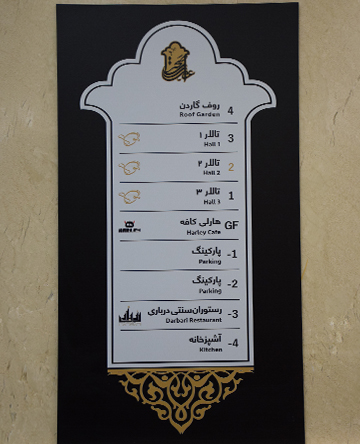 روف گاردن 4
Roof Garden
تالار ۱ 3
Hall 1
تالار ۲ 2
Hall 2
تالار ۳ 1
Hall 3
هارلی کافه GF
Harley Cafe
پارکینگ -1
Parking
پارکینگ -2
Parking
رستوران سنتی درباری -3
Darbari Restaurant
آشپزخانه -4
Kitchen